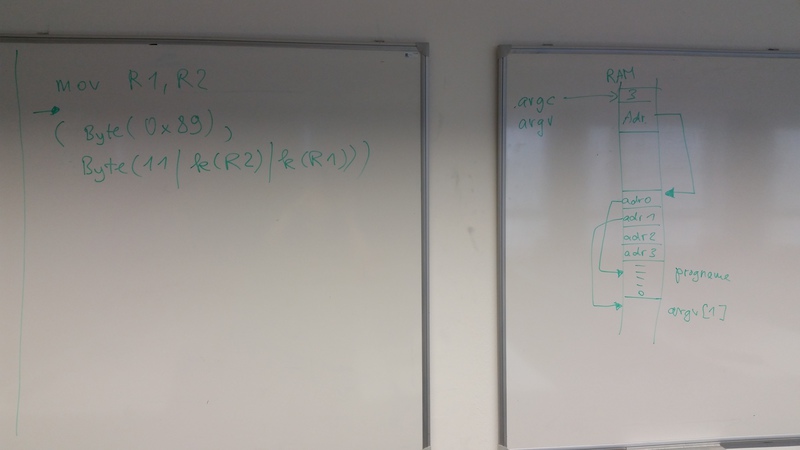 mov R1, R2
( Byte(0x89),
Byte(11|k(R2)|k(R1)))
RAM
argc
3
argv
Adr.
adr0
adr1
adr2
adr3
progname
0
argv[1]